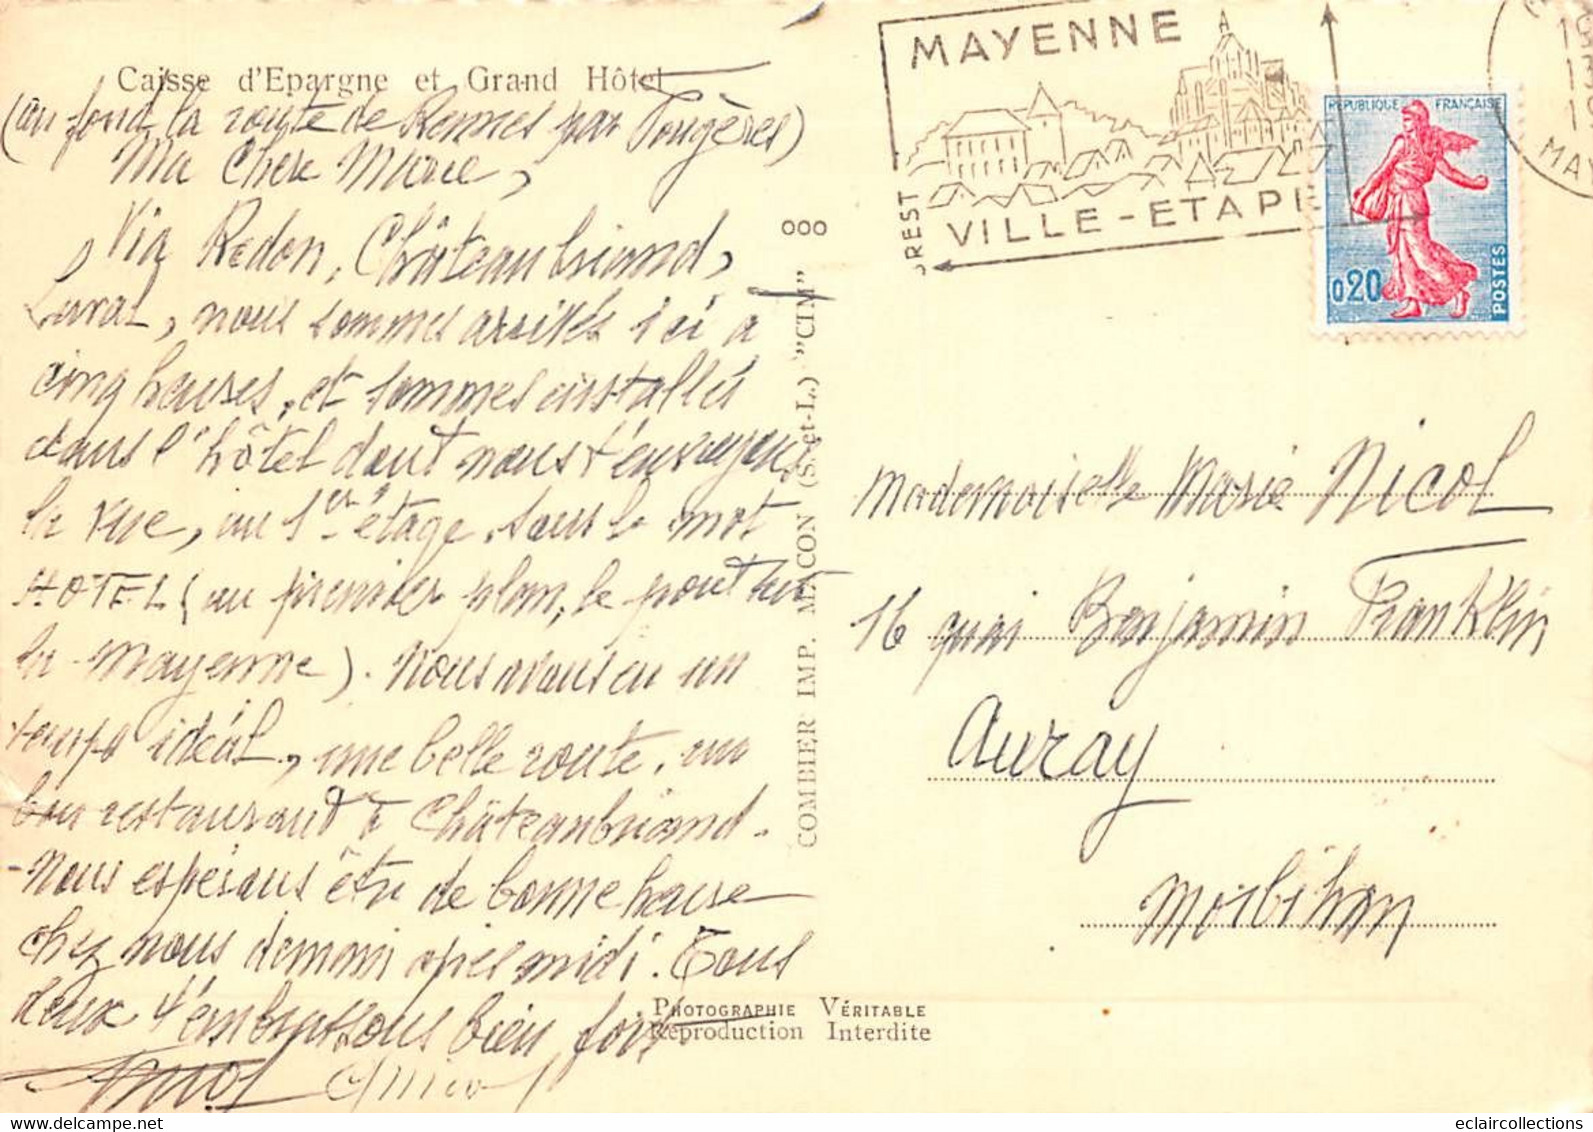 Caisse d'Epargne et Grand Hôtel
(au fond la route de Rennes par Fougères)
Ma Chère Marie,
Via Redon, Châteaubriand,
Laval, nous sommes arrivés ici à
cinq heures, et sommes installés
dans l'hôtel dont nous t'envoyons
la vue, au 1er étage, sous le mot
HOTEL (au premier plan, le pont sur
la Mayenne). Nous avons eu un
temps idéal, une belle route, un
bon restaurant à Châteaubriand.
Nous espérons être de bonne heure
chez nous demain après midi. Tous
deux t'embrassons bien fort
Nicol
ooo
COMBIER IMP. MACON (S.-et-L.) "CIM"
PHOTOGRAPHIE VÉRITABLE
Reproduction Interdite
MAYENNE
VILLE-ETAPE
BREST
MAY
REPUBLIQUE FRANÇAISE
0,20
POSTES
Mademoiselle Marie Nicol
16 quai Benjamin Franklin
Auray
Morbihan
eclaircollections